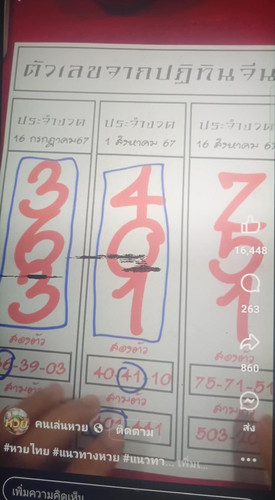 ตัวเลขจากปฏิทินจีน
ประจำงวด
16 กรกฎาคม67
ประจำงวด
1 สิงหาคม 67
ประจำงวด
16 สิงหาคม 67
3
6
3
4
0
1
7
5
1
สองตัว
-39-03
สามตัว
สองตัว
40-41-10
สามตัว
สองตัว
75-71-51
สามตัว
16,448
263
860
ส่ง
คนเล่นหวย
ติดตาม
#หวยไทย #แนวทางหวย #แนวทา... เพิ่มเ...
เพิ่มความคิดเห็น